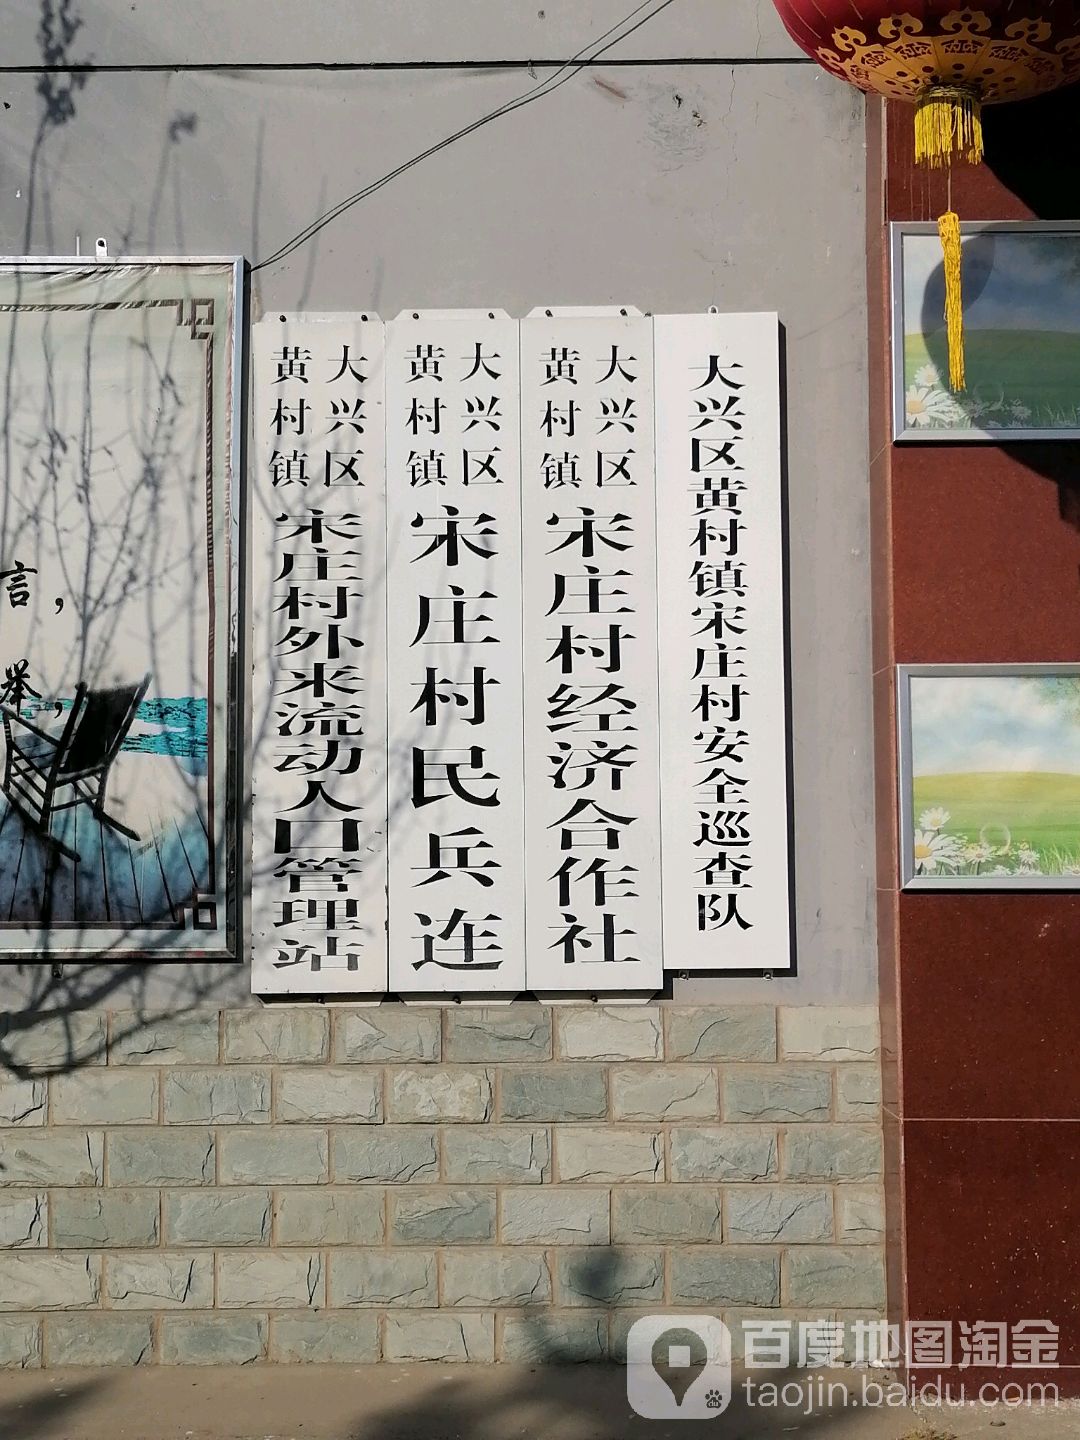 大兴区黄村镇宋庄村安全巡查队
大兴区
黄村镇
宋庄村经济合作社
大兴区
黄村镇
宋庄村民兵连
大兴区
黄村镇
宋庄村外来流动人口管理站
言，
举，
百度地图淘金
taojin.baidu.com
du